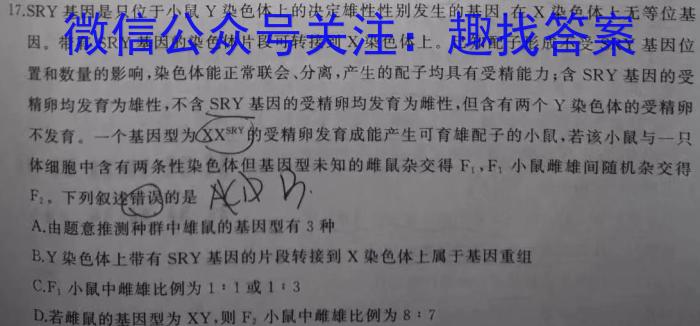 17.SRY 基因是只位于小鼠 Y 染色体上的决定雄性性别发生的基因,在 X 染色体上无等位基
因。带 SRY 基因的染色体片段可转接到 X 染色体上。已知配子形成不受 基因位
微信公众号关注：趣找答案
置和数量的影响,染色体能正常联会、分离,产生的配子均具有受精能力;含 SRY 基因的受
精卵均发育为雄性,不含 SRY 基因的受精卵均发育为雌性,但含有两个 Y 染色体的受精卵
不发育。一个基因型为 XXˢᴿʸ 的受精卵发育成能产生可育雄配子的小鼠,若该小鼠与一只
体细胞中含有两条性染色体但基因型未知的雌鼠杂交得 F₁,F₁ 小鼠雌雄间随机杂交得
F₂。下列叙述错误的是 ACD B
A.由题意推测种群中雄鼠的基因型有 3 种
B.Y 染色体上带有 SRY 基因的片段转接到 X 染色体上属于基因重组
C.F₁ 小鼠中雌雄比例为 1∶1 或 1∶3
D.若雌鼠的基因型为 XY,则 F₂ 小鼠中雌雄比例为 8∶7